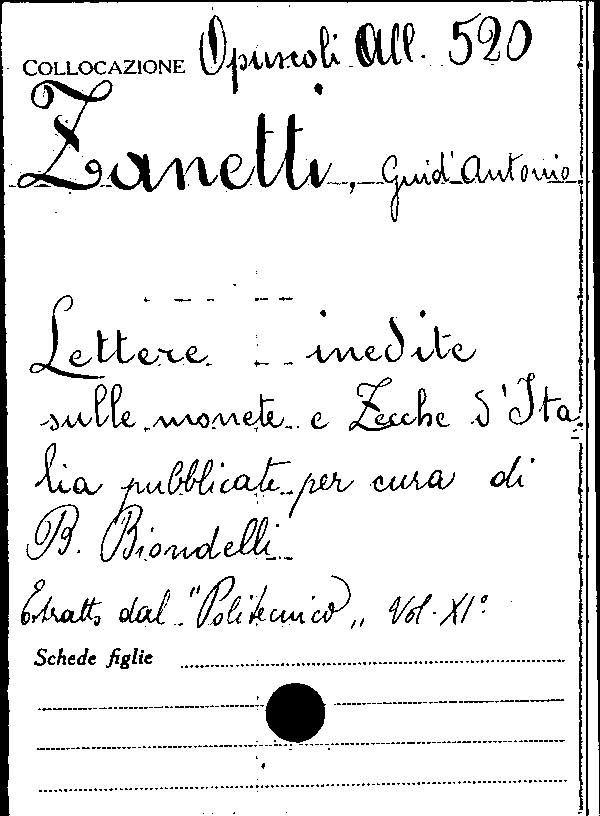 COLLOCAZIONE Opuscoli All. 520
Zanetti, Guid'Antonio
Lettere inedite
sulle monete e Zecche d'Ita
lia pubblicate per cura di
B. Biondelli
Estratto dal "Politecnico" Vol. XI°
Schede figlie